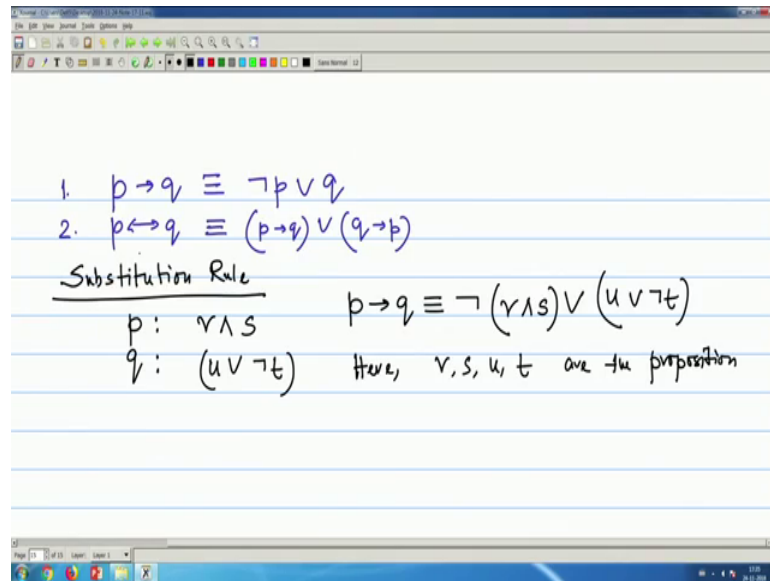 File Edit View Journal Tools Options Help
Sans Normal 12
1. p → q ≡ ¬p ∨ q
2. p ↔ q ≡ (p → q) ∨ (q → p)
Substitution Rule
p : r ∧ s
p → q ≡ ¬ (r ∧ s) ∨ (u ∨ ¬t)
q : (u ∨ ¬t)
Here, r, s, u, t are the proposition
Page 15 of 15 Layer: Layer 1
17:35